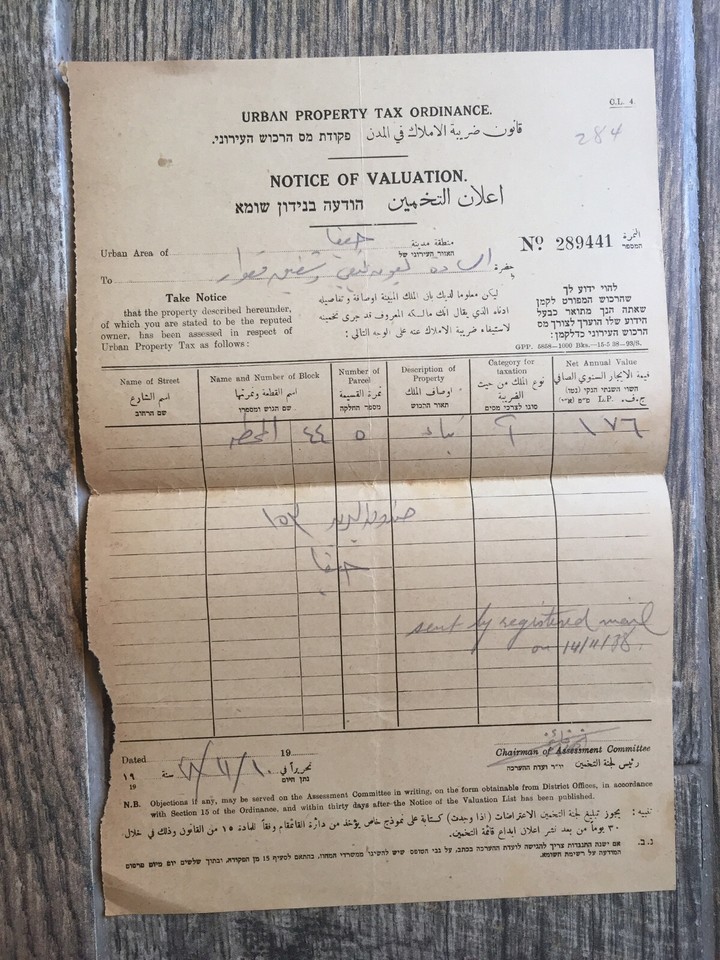 C.L. 4
URBAN PROPERTY TAX ORDINANCE.
قانون ضريبة الاملاك في المدن פקודת מס הרכוש העירוני.
284
NOTICE OF VALUATION.
اعلان التخمين הודעה בנידון שומא
Urban Area of حيفا منطقة مدينة האזור העירוני של
Nº 289441 النمرة המספר
To السادة حضرة
Take Notice
that the property described hereunder,
of which you are stated to be the reputed
owner, has been assessed in respect of
Urban Property Tax as follows:
ليكن معلوما لديك بان الملك المبينة اوصافة وتفاصيله
ادناه الذي يقال انك مالكه المعروف قد جرى تخمينه
لاستيفاء ضريبة الاملاك عنه على الوجه التالي:
להוי ידוע לך
שהרכוש המפורט לקמן
שאתה הנך מתואר כבעל
הידוע שלו הוערך לצורך מס
הרכוש העירוני כדלקמן:
GPP. 5858—1000 Bks.—15-5-38—93/S.
Name of Street اسم الشارع שם הרחוב
Name and Number of Block اسم القطعة ونمرتها שם הגוש ומספרו
Number of Parcel نمرة القسيمة מספר החלקה
Description of Property اوصاف الملك תאור הרכוש
Category for taxation نوع الملك من حيث الضريبة סוגו לצרכי מסים
Net Annual Value قيمة الايجار السنوي الصافي השווי השנתי הנקי (נטו) ج.ف. LP. מ"פ (א"י)
المحطة ٤٤ ٥ بناء ١٧٦
صندوق البريد ١٥٣
حيفا
sent by registered mail
on 14/11/38.
Chairman of Assessment Committee
رئيس لجنة التخمين יו"ר ועדת ההערכה
Dated 19
١٩ سنة ٣٨/١١/١٠ تحريراً في
19 נתן היום
N.B. Objections if any, may be served on the Assessment Committee in writing, on the form obtainable from District Offices, in accordance
with Section 15 of the Ordinance, and within thirty days after the Notice of the Valuation List has been published.
تنبيه: يجوز تبليغ لجنة التخمين الاعتراضات (اذا وجدت) كتابة على نموذج خاص يؤخذ من دائرة القائمقام وفقاً للمادة ١٥ من القانون وذلك في خلال
٣٠ يوماً من بعد نشر اعلان ايداع قائمة التخمين.
נ.ב. אם ישנה התנגדות צריך להגישה לועדת ההערכה בכתב, על גבי הטופס שיש להשיגו ממשרדי המחוז, בהתאם לסעיף 15 מן הפקודה, ובתוך שלשים יום מיום פרסום
המודעה על רשימת השומא.